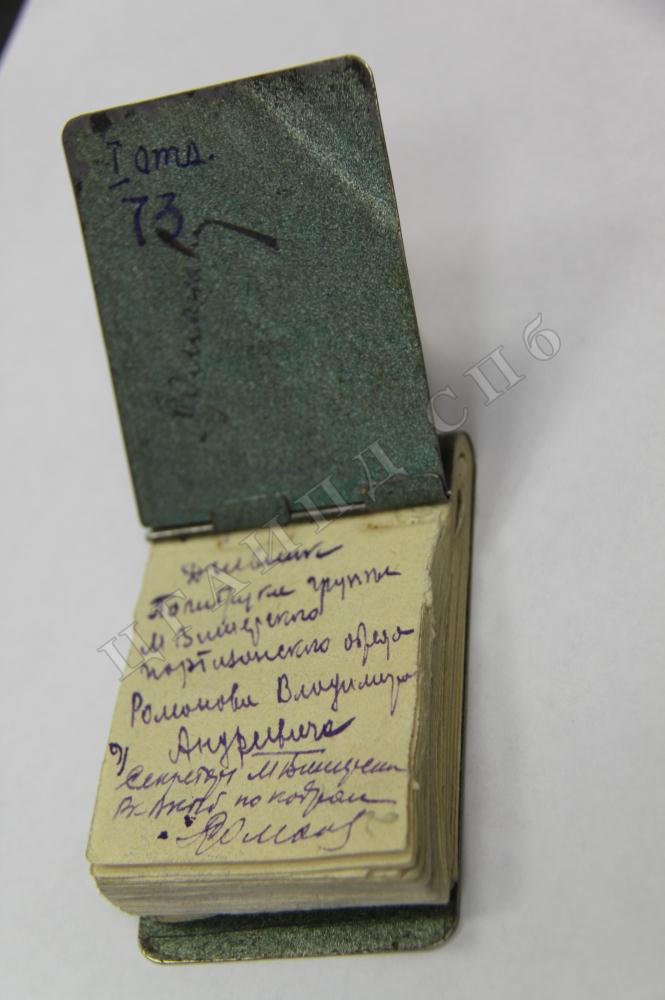 I отд.
73
Романов
Дневник
Политрука группы
М Вишерского
партизанского отряда
Романова Владимира
Андреевича
Секретарь М Вишерск
РК ВЛКСМ по кадрам
Романов
ЦГАИПД СПб